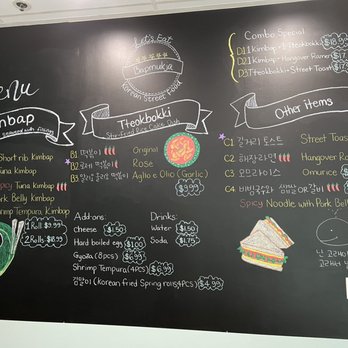 Let's Eat
Bapmukja
Korean Street Food
Menu
Kimbap
Short rib Kimbap
Tuna Kimbap
Spicy Tuna Kimbap
Pork Belly Kimbap
Shrimp Tempura Kimbap
1 Roll $9.99
2 Rolls $18.99
Tteokbokki
Stir-Fried Rice Cake Dish
B1 떡볶이 Original
B2 로제 떡볶이 Rose
B3 알리오 올리오 떡볶이 Aglio e Olio (Garlic)
$9.99
Add-ons:
cheese $1.50
Hard boiled egg $1.00
Gyoza (8pcs) $6.99
Shrimp Tempura (4PCS) $6.99
김말이 (Korean fried Spring rolls 4PCS) $4.99
Drinks:
Water $1.50
Soda $1.75
Combo Special
D1 1 Kimbap + 1 Tteokbokki $18
D2 1 Kimbap + Hangover Ramen $17
D3 Tteokbokki + Street Toast
Other items
C1 길거리 토스트 Street Toast
C2 해장라면 Hangover
C3 오므라이스 Omurice
C4 비빔국수와
Spicy Noodle with Pork Belly